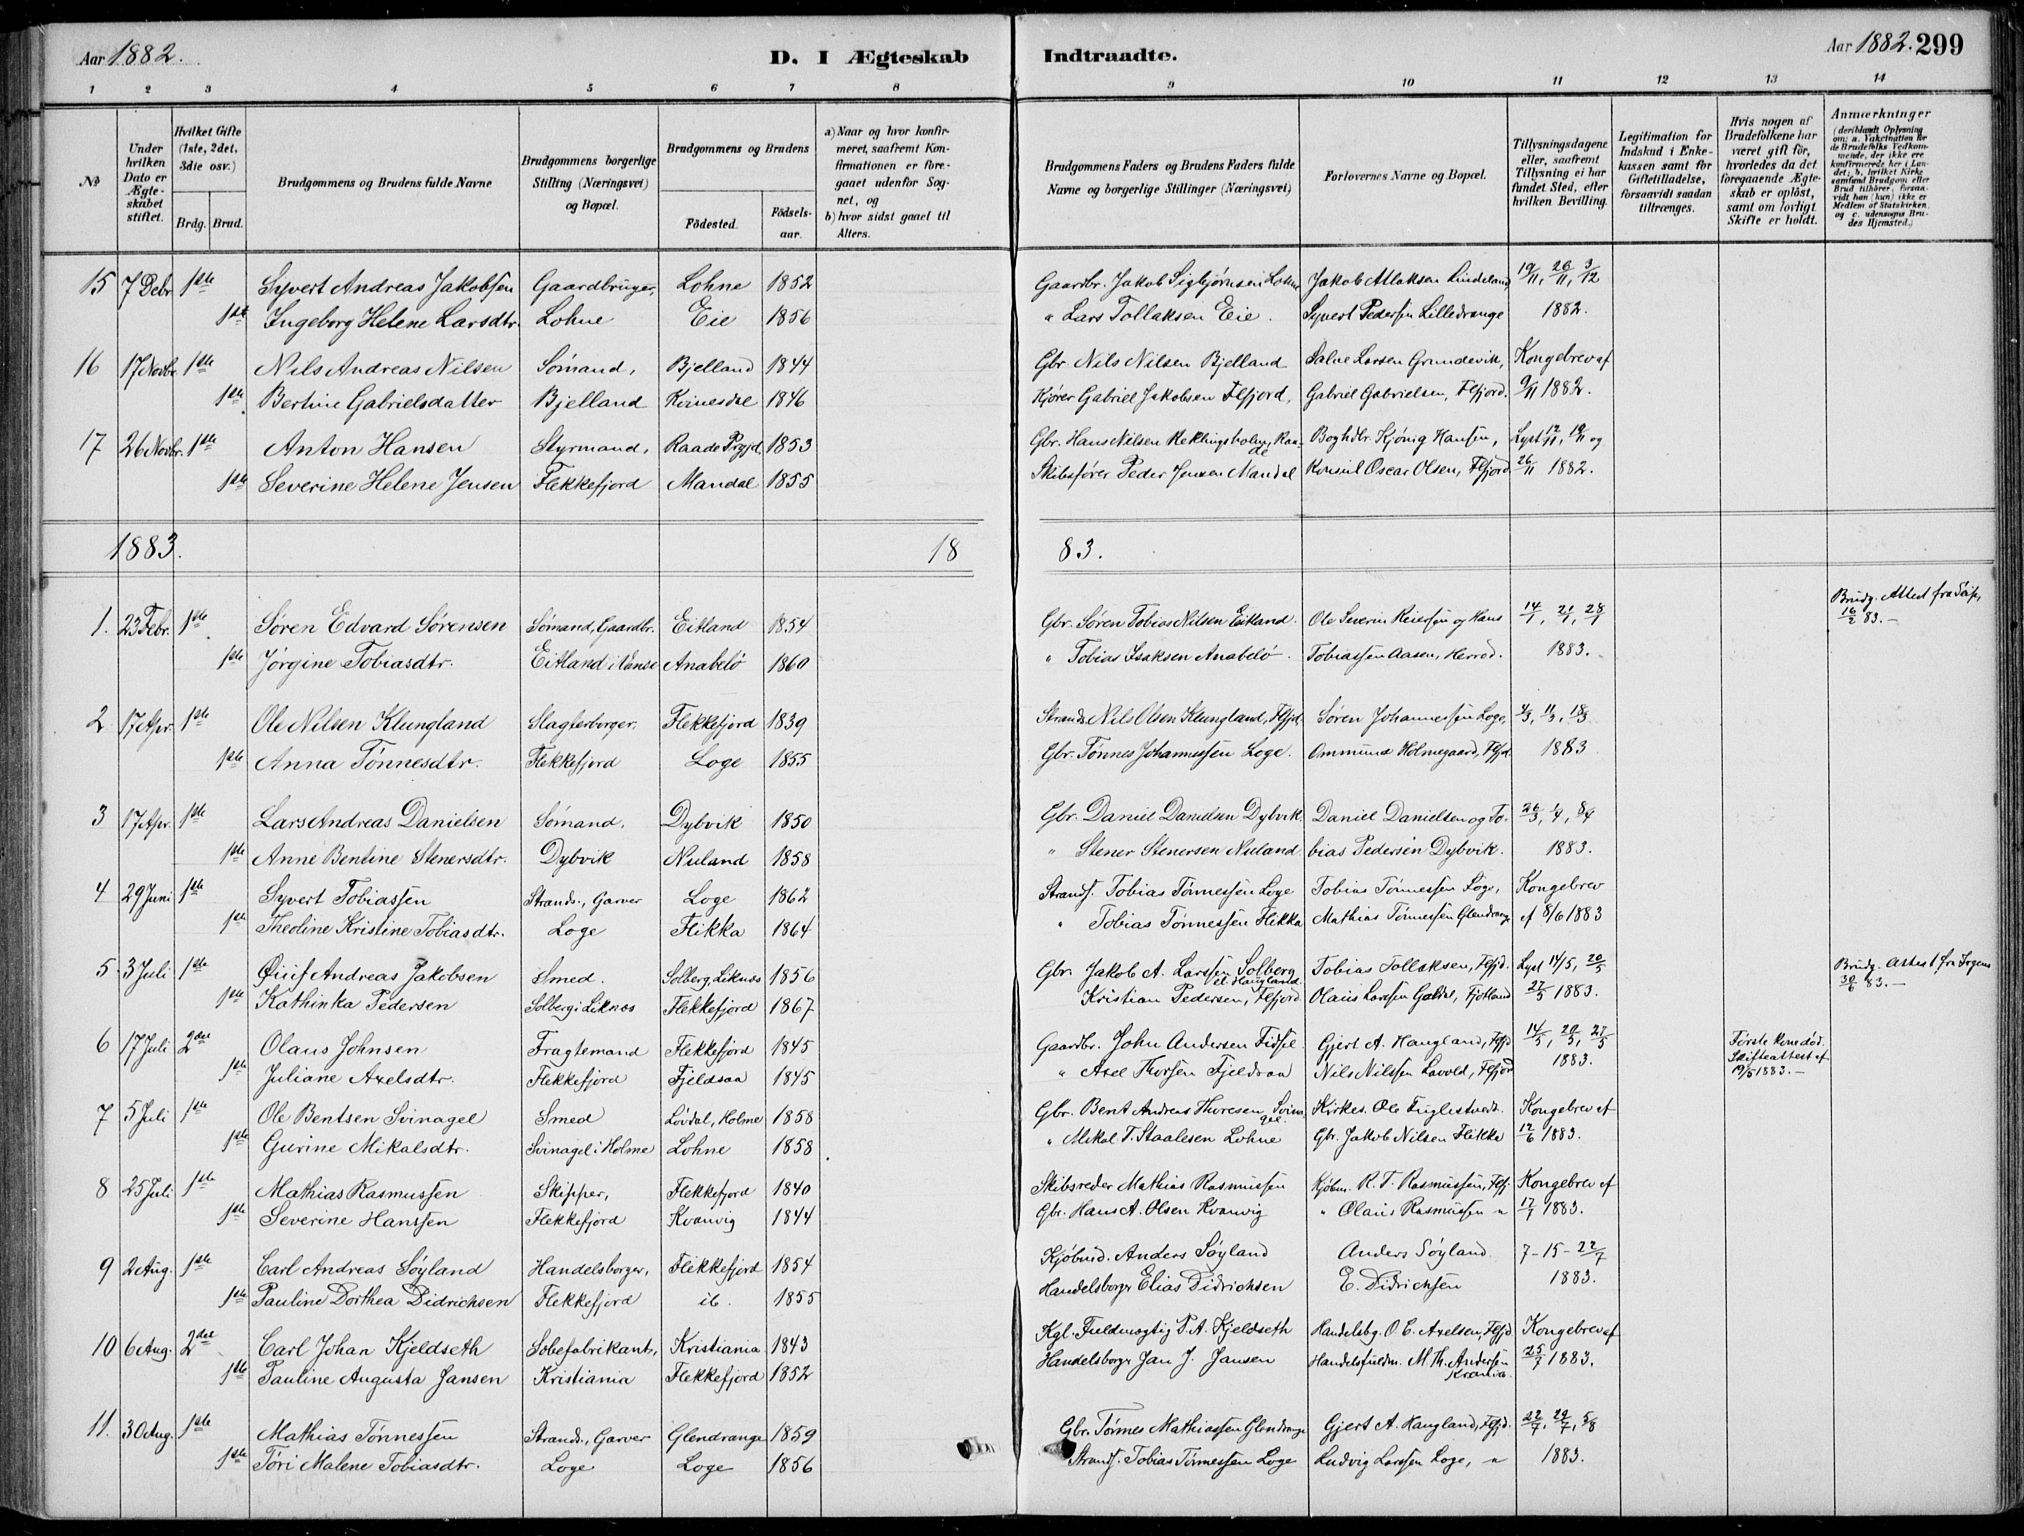 Aar 1882.
D. I Ægteskab
Indtraadte.
Aar 1882. 299
1 2 3 4 5 6 7 8 9 10 11 12 13 14
№
Under hvilken Dato er Ægteskabet stiftet.
Hvilket Gifte (1ste, 2det, 3die osv.)
Brdg. Brud.
Brudgommens og Brudens fulde Navne
Brudgommens borgerlige Stilling (Næringsvei) og Bopæl.
Brudgommens og Brudens
Fødested.
Fødselsaar.
a) Naar og hvor konfirmeret, saafremt Konfirmationen er foregaaet udenfor Sognet, og
b) hvor sidst gaaet til Alters.
Brudgommens Faders og Brudens Faders fulde Navne og borgerlige Stillinger (Næringsvei)
Forlovernes Navne og Bopæl.
Tillysningsdagene eller, saafremt Tillysning ei har fundet Sted, efter hvilken Bevilling.
Legitimation for Indskud i Enkekassen samt for Giftetilladelse, forsaavidt saadan tiltrænges.
Hvis nogen af Brudefolkene har været gift før, hvorledes da det foregaaende Ægteskab er opløst, samt om lovligt Skifte er holdt.
Anmærkninger
(deriblandt Oplysning om: a. Vakcination for de Brudefolks Vedkommende, der ikke ere konfirmerede her i Landet; b. hvilket Kirkesamfund Brudgom eller Brud tilhører, forsaavidt han (hun) ikke er Medlem af Statskirken, og c. udensogns Brudes Hjemsted.)
15 7 Debr. 1ste Syvert Andreas Jakobsen Gaardbruger, Lohne 1852 Gaardbr. Jakob Sigbjørnsen Lohne Jakob Atlaksen Lindeland 19/11, 26/11, 3/12
1ste Ingeborg Helene Larsdtr. Lohne Eie 1856 " Lars Tollaksen Eie. Syvert Pedersen Lilledrange 1882.
16 17 Novbr. 1ste Nils Andreas Nilsen Sømand, Bjelland 1844 Gbr. Nils Nilsen Bjelland Salve Larsen Grundevik, Kongebrev af
1ste Bertine Gabrielsdatter Bjelland Kvinesdal 1846 Kjører Gabriel Jakobsen Flfjord, Gabriel Gabrielsen, Flfjord. 9/11 1882.
17 26 Novbr. 1ste Anton Hansen Styrmand, Raade Prgjd. 1853 Gbr. Hans Nilsen Raade Boghdlr. Kjønig Hansen, Lyst 12/11, 19/11 og
1ste Severine Helene Jensen Flekkefjord Mandal 1855 Skibsfører Peder Jensen Mandal Konsul Oscar Olsen, Flfjord 26/11 1882.
1883. 18 83.
1. 23 Febr. 1ste Søren Edvard Sørensen Sømand, Gaardbr. Eitland 1854 Gbr. Søren Tobias Nilsen Eitland. Ole Severin Reiersen og Hans 14/1, 21/1, 28/1 Brudg. Attest fra 16/2 83.-
1ste Jørgine Tobiasdtr. Eitland i Vanse Anabelø 1860 " Tobias Isaksen Anabelø. Tobiassen Aasen, Herred. 1883.
2 17 Apr. 1ste Ole Nilsen Klungland Slagterborger, Flekkefjord 1839 Strands. Nils Olsen Klungland, Flfjd. Søren Johannessen Loge, 4/3, 11/3, 18/3
1ste Anna Tønnesdtr. Flekkefjord Loge 1855 Gbr. Tønnes Johannessen Loge. Ommund Holmegaard, Flfjd. 1883
3 17 Apr. 1ste Lars Andreas Danielsen Sømand, Dybvik 1850 Gbr. Daniel Danielsen Dybvik Daniel Danielsen og To- 26/3, 1/4, 8/4
1ste Anne Bentine Stenersdtr. Dybvik Nuland 1858 " Stener Stenersen Nuland bias Pedersen Dybvik. 1883.
4 29 Juni 1ste Syvert Tobiassen Strands., Garver Loge 1862 Strands. Tobias Tønnessen Loge Tobias Tønnessen Loge, Kongebrev
1ste Theoline Kristine Tobiasdtr. Loge Flikka 1864 " Tobias Tønnessen Flikka Mathias Tønnessen Glendrange af 8/6 1883
5 3 Juli 1ste Øisif Andreas Jakobsen Smed. Solberg, Liknes 1856 Gbr. Jakob A. Larssen Solberg el. Haugland Tobias Tollaksen, Flfjd. Lyst 14/5, 20/5 Brudg. Attest fra 30/6 83.-
1ste Kathinka Pedersen Solberg i Liknes Flekkefjord 1867 Kristian Pedersen, Flfjord Olaus Larssen Galdal, Fjotland 27/5 1883.
6 17 Juli 2det Olaus Johnsen Fragtemand Flekkefjord 1845 Gaardbr. John Andersen Fidsel. Gjert A. Haugland, Flfjd 14/5, 20/5, 27/5 Første Kone død. Skifteattest af 19/5 1883.-
1ste Juliane Axelsdtr. Flekkefjord Fjeldsaa 1845 " Axel Thorsen Fjeldsaa Nils Nilssen Lavold, Flfjord 1883.
7 5 Juli 1ste Ole Bentsen Svinagel Smed Løvdal, Holme 1858 Gbr. Bent Andreas Thoresen Svinagel. Kirkes. Ole Fuglestvedt. Kongebrev af
1ste Gurine Mikalsdtr. Svinagel i Holme Lohne 1858 " Mikal T. Staalesen Lohne Gbr. Jakob Nilsen Flikke 12/6 1883.
8 25 Juli 1ste Mathias Rasmussen Skipper, Flekkefjord 1840 Skibsreder Mathias Rasmussen Kjøbm. R. T. Rasmussen, Flfj. Kongebrev af
1ste Severine Hanssen Flekkefjord Kvanvig 1844 Gbr. Hans A. Olsen Kvanvig " Olaus Rasmussen " 17/7 1883.
9 2 Aug. 1ste Carl Andreas Søyland Handelsborger, Flekkefjord 1854 Kjøbmd. Anders Søyland Anders Søyland. 7 - 15 - 22/7
1ste Pauline Dorthea Didrichsen Flekkefjord ib. 1855 Handelsborgr Elias Didrichsen E. Didrichsen 1883.
10 6 Aug. 2det Carl Johan Kjeldseth Sæbefabrikant, Kristiania 1843 Kgl. Fuldmægtig P. A. Kjeldseth Handelsbg. O. C. Axelsen, Flfjd Kongebrev af
1ste Pauline Augusta Jansen Kristiania Flekkefjord 1852 Handelsborgr Jan J. Jansen Handelsfuldm. M. Th. Andersen 25/7 1883.
11. 30 Aug. 1ste Mathias Tønnessen Strands., Garver Glendrange 1859 Gbr. Tønnes Mathiassen Glendrange Gjert A. Haugland, Flfjd. 22/7, 29/7, 5/8
1ste Tori Malene Tobiasdtr. Loge Loge 1856 Strands. Tobias Tønnessen Loge Ludvig Larssen Loge, " 1883.